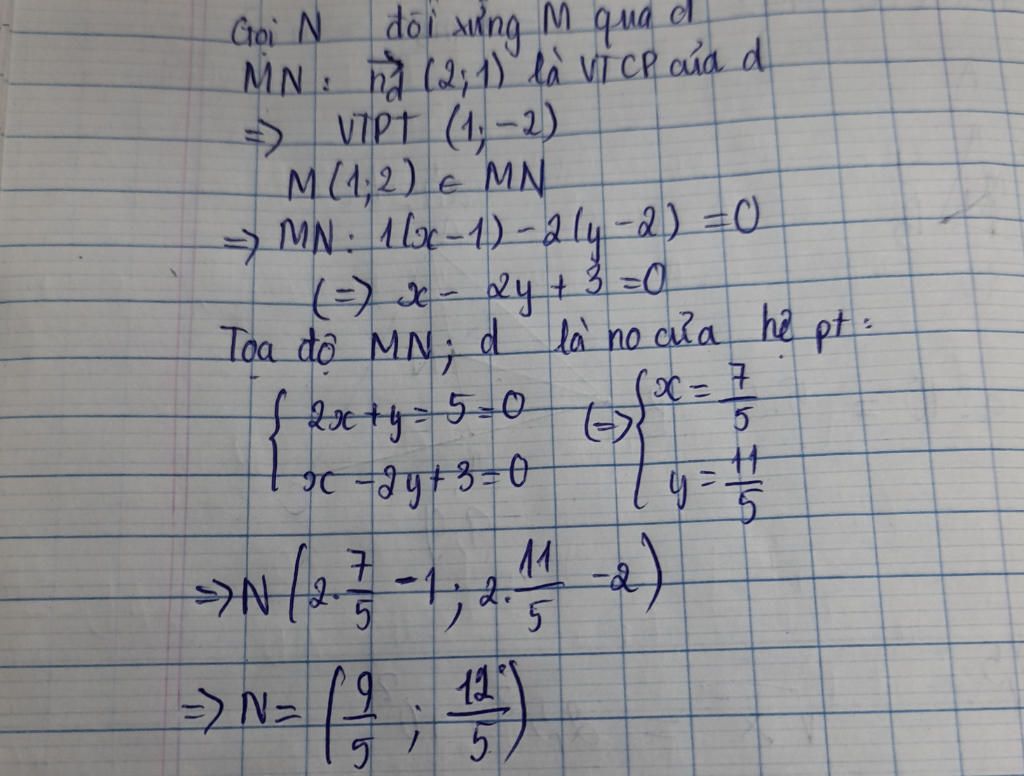 Gọi N đối xứng M qua d
MN: n⃗d (2;1) là VTCP của d
=> VTPT (1;-2)
M(1;2) ∈ MN
=> MN: 1(x-1) - 2(y-2) = 0
(=) x - 2y + 3 = 0
Tọa độ MN; d là no của hệ pt:
{ 2x+y = 5 = 0 (=> { x = 7/5
x - 2y + 3 = 0 y = 11/5
=> N (2. 7/5 - 1; 2. 11/5 - 2)
=> N = (9/5; 12/5)